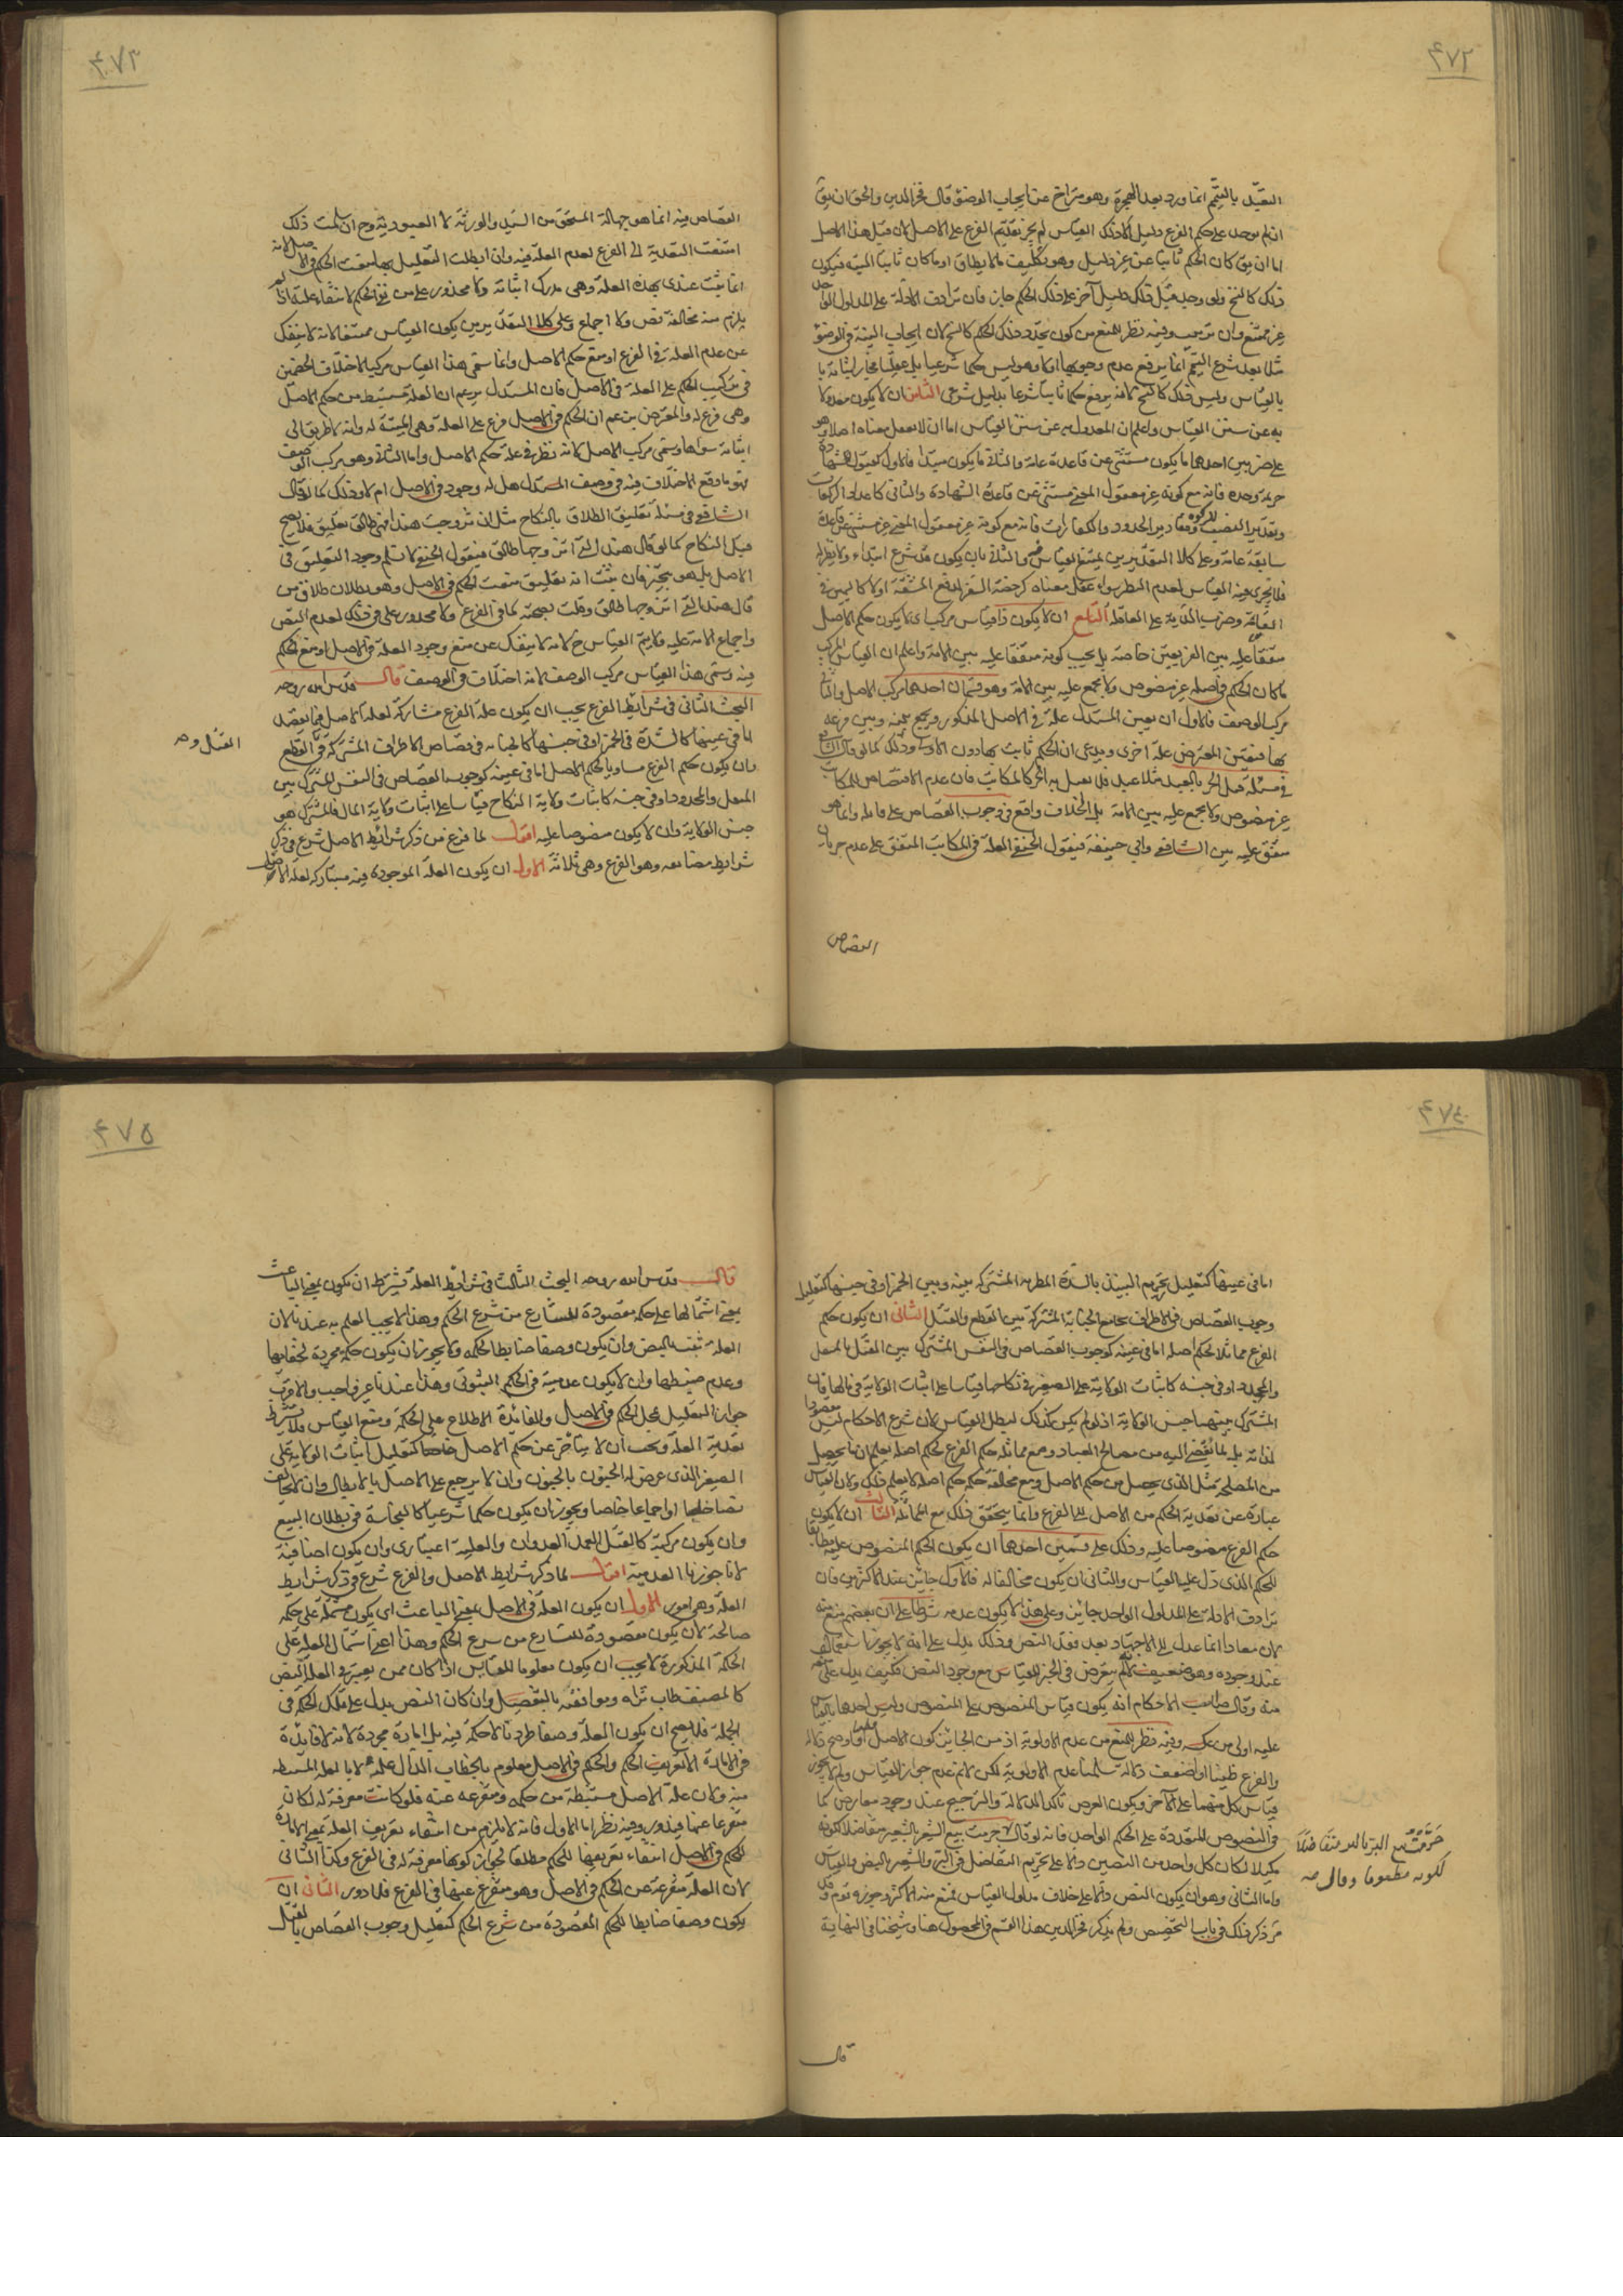 ٤٧٢
التعبّد بالتيمّم انما ورد بعد الهجرة وهو متراخ عن ايجاب الوضوء قال فخر الدين والحق ان يق
ان لم يوجد على حكم الفرع دليل الا ذلك القياس لم يجز تقديم الفرع على الاصل لان قبل هذا الاصل
اما ان يق كان الحكم ثابتا من غير دليل وهو تكليف ما لا يطاق او ما كان ثابتا البتة فيكون
ذلك كالنسخ ولو وجد قبل ذلك دليل آخر على ذلك الحكم جاز فان ترادف الادلة على المدلول الواحد
غير ممتنع وان ترتبت وفيه نظر للمنع من كون تجدّد ذلك الحكم كالنسخ لان ايجاب النية في الوضوء
مثلا بعد شرع التيمم انما يرفع عدم وجوبها اولا وهو ليس حكما شرعيا بل عقليا فجاز اثباته
بالقياس وليس ذلك كالنسخ لانه يرفع حكما ثابتا شرعا بدليل شرعي الثامن ان لا يكون معدولا
به عن سنن القياس واعلم ان المعدول به عن سنن القياس اما ان لا يعقل معناه اصلا وهو
على ضربين احدهما ما يكون مستثنى عن قاعدة عامة والثاني ما يكون مبتدأ فالاول كقبول شهادة
خزيمة وحده فانه مع كونه غير معقول المعنى مستثنى عن قاعدة الشهادة والثاني كاعداد الركعات
وتقدير النصب للزكوة ومقادير الحدود والكفارات فانه مع كونه غير معقول المعنى غير مستثنى عن قاعدة
سابقة عامة وعلى كلا التقديرين يمتنع القياس فيه والثاني بان يكون قد شرع ابتداء ولا نظير له
فلا يجري فيه القياس لعدم النظير سواء عقل معناه كرخصة السفر لدفع المشقة اولا كاليمين في
القسامة وضرب الدية على العاقلة التاسع ان لا يكون ذا قياس مركب اي لا يكون حكم الاصل
متفقا عليه بين الفريقين خاصة بل يجب كونه متفقا عليه بين الامة واعلم ان القياس المركب
ما كان الحكم في اصله غير منصوص ولا مجمع عليه بين الامة وهو قسمان احدهما مركب الاصل والثاني
مركب الوصف فالاول ان يعين المستدل علة في الاصل المذكور ويجمع بينه وبين فرعه
بها فيعين المعترض علة اخرى ويدعي ان الحكم ثابت بها دون الاولى وذلك كما لو قال الشافعي
في مسئلة قتل الحر بالعبد مثلا عبد فلا يقتل به الحر كالمكاتب فان عدم الاقتصاص للمكاتب
غير منصوص ولا مجمع عليه بين الامة بل الخلاف واقع في وجوب القصاص على قاتله وانما هو
متفق عليه بين الشافعي وابي حنيفة فيقول الحنفي العلة في المكاتب المتفق على عدم جريان
القصاص
٤٧٣
القصاص فيه انما هو جهالة المستحق من السيد والورثة لا العبودية وح ان سلمت ذلك
امتنعت التعدية الى الفرع لعدم العلة فيه وان ابطلت التعليل بها منعت الحكم في الاصل لانه
انما ثبت عندي بهذه العلة وهي مدرك اثباته ولا محذور على من نفي الحكم لانتفاء علته اذا لم
يلزم منه مخالفة نص ولا اجماع وعلى كلا التقديرين يكون القياس ممتنعا لانه لا ينفك
عن عدم العلة في الفرع او منع حكم الاصل وانما سمي هذا القياس مركبا لاختلاف الخصمين
في تركيب الحكم على العلة في الاصل فان المستدل يزعم ان العلة مستنبطة من حكم الاصل
وهي فرع له والمعترض يزعم ان الحكم في الاصل فرع على العلة وهي المثبتة له وانه لا طريق الى
اثباته سواها وسمي مركب الاصل لانه نظر في علة حكم الاصل واما الثاني وهو مركب الوصف
فهو ما وقع الاختلاف فيه في وصف المستدل هل له وجود في الاصل ام لا وذلك كما لو قال
الشافعي في مسئلة تعليق الطلاق بالنكاح مثل ان تزوجت هندا فهي طالق تعليق فلا يصح
قبل النكاح كما لو قال هند التي اتزوجها طالق فيقول الحنفي لا نسلم وجود التعليق في
الاصل بل هو تنجيز فان ثبت انه تعليق منعت الحكم في الاصل وهو بطلان طلاق من
قال هند التي اتزوجها طالق وقلت بصحته كما في الفرع ولا محذور علي في ذلك لعدم النص
واجماع الامة عليه فلا يتم القياس ح لانه لا ينفك عن منع وجود العلة في الاصل او منع الحكم
فيه وسمي هذا القياس مركب الوصف لانه اختلاف في الوصف قال قدس الله روحه
البحث الثاني في شرائط الفرع يجب ان يكون علة الفرع مشاركة لعلة الاصل فيما يقصد
اما في عينها كالشدة في الخمر او في جنسها كالجناية في قصاص الاطراف المشتركة في القطع
وان يكون حكم الفرع مساويا لحكم الاصل اما في عينه كوجوب القصاص في النفس المشترك بين
المثقل والمحدد او في جنسه كاثبات ولاية النكاح قياسا على اثبات ولاية المال فالمشترك هو
جنس الولاية وان لا يكون منصوصا عليه اقول لما فرغ من ذكر شرائط الاصل شرع في ذكر
شرائط مضاهيه وهو الفرع وهي ثلاثة الاول ان يكون العلة الموجودة فيه مشاركة لعلة الاصل
القتل و صح
٤٧٤
اما في عينها كتعليل تحريم النبيذ بالشدة المطربة المشتركة بينه وبين الخمر او في جنسها كتعليل
وجوب القصاص في الاطراف بجامع الجناية المشتركة بين القطع والقتل الثاني ان يكون حكم
الفرع مماثلا لحكم اصله اما في عينه كوجوب القصاص في النفس المشترك بين المثقل
والمحدد او في جنسه كاثبات الولاية على الصغيرة في نكاحها قياسا على اثبات الولاية في مالها فان
المشترك بينهما جنس الولاية اذ لو لم يكن كذلك لبطل القياس لان شرع الاحكام ليس مقصودا
لذاته بل لما يفضي اليه من مصالح العباد ومع مماثلة حكم الفرع لحكم اصله يعلم ان ما يحصل
من المصلحة مثل الذي يحصل من حكم الاصل ومع مخالفة حكمه حكم اصله لا يعلم ذلك ولان القياس
عبارة عن تعدية الحكم من الاصل الى الفرع وانما يتحقق ذلك مع المماثلة الثالث ان لا يكون
حكم الفرع منصوصا عليه وذلك على قسمين احدهما ان يكون الحكم المنصوص عليه مطابقا
للحكم الذي دل عليه القياس والثاني ان يكون مخالفا له فالاول جائز عند الاكثرين فان
ترادف الادلة على المدلول الواحد جائز وعلى هذا لا يكون عدمه شرطا على ان بعضهم منع منه
لان معاذا انما عدل الى الاجتهاد بعد فقد النص وذلك يدل على انه لا يجوز استعماله
عند وجوده وهو ضعيف لانه لم يتعرض في الخبر للقياس مع وجود النص فكيف يدل على منعه
منه وقال صاحب الاحكام انه يكون قياس المنصوص على المنصوص وليس احدهما بالقياس
عليه اولى من عكسه وفيه نظر للمنع من عدم الاولوية اذ من الجائز كون الاصل اقوى واوضح دلالة
والفرع ظنيا او اضعف دلالة سلمنا عدم الاولوية لكن لا نم عدم جواز القياس ولم لا يجوز
قياس كل منهما على الآخر ويكون الغرض تأكد الدلالة والترجيح عند وجود معارض كما
في النصوص المتعددة على الحكم الواحد فانه لو قال حرمت بيع الشعير بالشعير متفاضلا لكونه
مكيلا لكان كل واحد من النصين دالا على تحريم التفاضل في البر والشعير بالنص والقياس
واما الثاني وهو ان يكون النص دالا على خلاف مدلول القياس فمنع منه الاكثر وجوزه قوم وقد
مر ذكر ذلك في باب التخصيص ولم يذكر فخر الدين هذا القسم في المحصول هنا وشيخنا في النهاية
حرمت بيع البر بالبر متفاضلا
لكونه مطعوما وقال صح
قال
٤٧٥
قال قدس الله روحه البحث الثالث في شرائط العلة يشترط ان يكون بمعنى الباعث
بمعنى اشتمالها على حكمة مقصودة للشارع من شرع الحكم وهذا لا يجب العلم به عندنا لان
العلة تثبت بالنص وان يكون وصفا ضابطا لحكمة ولا يجوز ان يكون حكمة مجردة لخفائها
وعدم ضبطها وان لا يكون عدمية في الحكم الثبوتي وهذا عندنا غير واجب والاقرب
جواز التعليل بمحل الحكم في الاصل والفائدة الاطلاع على الحكمة ومنع القياس فلا يشترط
تعدية العلة ويجب ان لا يتأخر عن حكم الاصل خارجا كتعليل اثبات الولاية على
الصغير الذي عرض له الجنون بالجنون وان لا يرجع على الاصل بالابطال وان لا يخالف
نصا خاصا او اجماعا خاصا ويجوز ان يكون حكما شرعيا كالنجاسة في بطلان البيع
وان يكون مركبة كالقتل العمد العدوان والعلية اعتباري وان يكون اضافية
لانا جوزنا العدمية اقول لما ذكر شرائط الاصل والفرع شرع في ذكر شرائط
العلة وهي امور الاول ان يكون العلة في الاصل بمعنى الباعث اي يكون مشتملة على حكمة
صالحة لان يكون مقصودة للشارع من شرع الحكم وهذا اعني اشتمال العلة على
الحكمة المذكورة لا يجب ان يكون معلوما للقايس اذا كان ممن يعتبر في العلة النص
كالمصنف طاب ثراه وموافقيه بالتفصيل وان كان النص يدل على تلك الحكمة في
الجملة فلا يصح ان يكون العلة وصفا طرديا لا حكمة فيه بل امارة مجردة لانه لا فائدة
في الامارة الا تعريف الحكم والحكم في الاصل معلوم بالخطاب الدال عليه لا بالعلة المستنبطة
منه ولان علة الاصل مستنبطة من حكمه ومتفرعة عنه فلو كانت معرفة له لكان
متفرعا عنها فيدور وفيه نظر اما الاول فانه لا يلزم من انتفاء تعريف العلة بمعنى الامارة
للحكم في الاصل انتفاء تعريفها للحكم مطلقا لجواز كونها معرفة له في الفرع وكذا الثاني
لان العلة متفرعة عن الحكم في الاصل وهو متفرع عنها في الفرع فلا دور الثاني ان
يكون وصفا ضابطا للحكم المقصودة من شرع الحكم كتعليل وجوب القصاص بالقتل